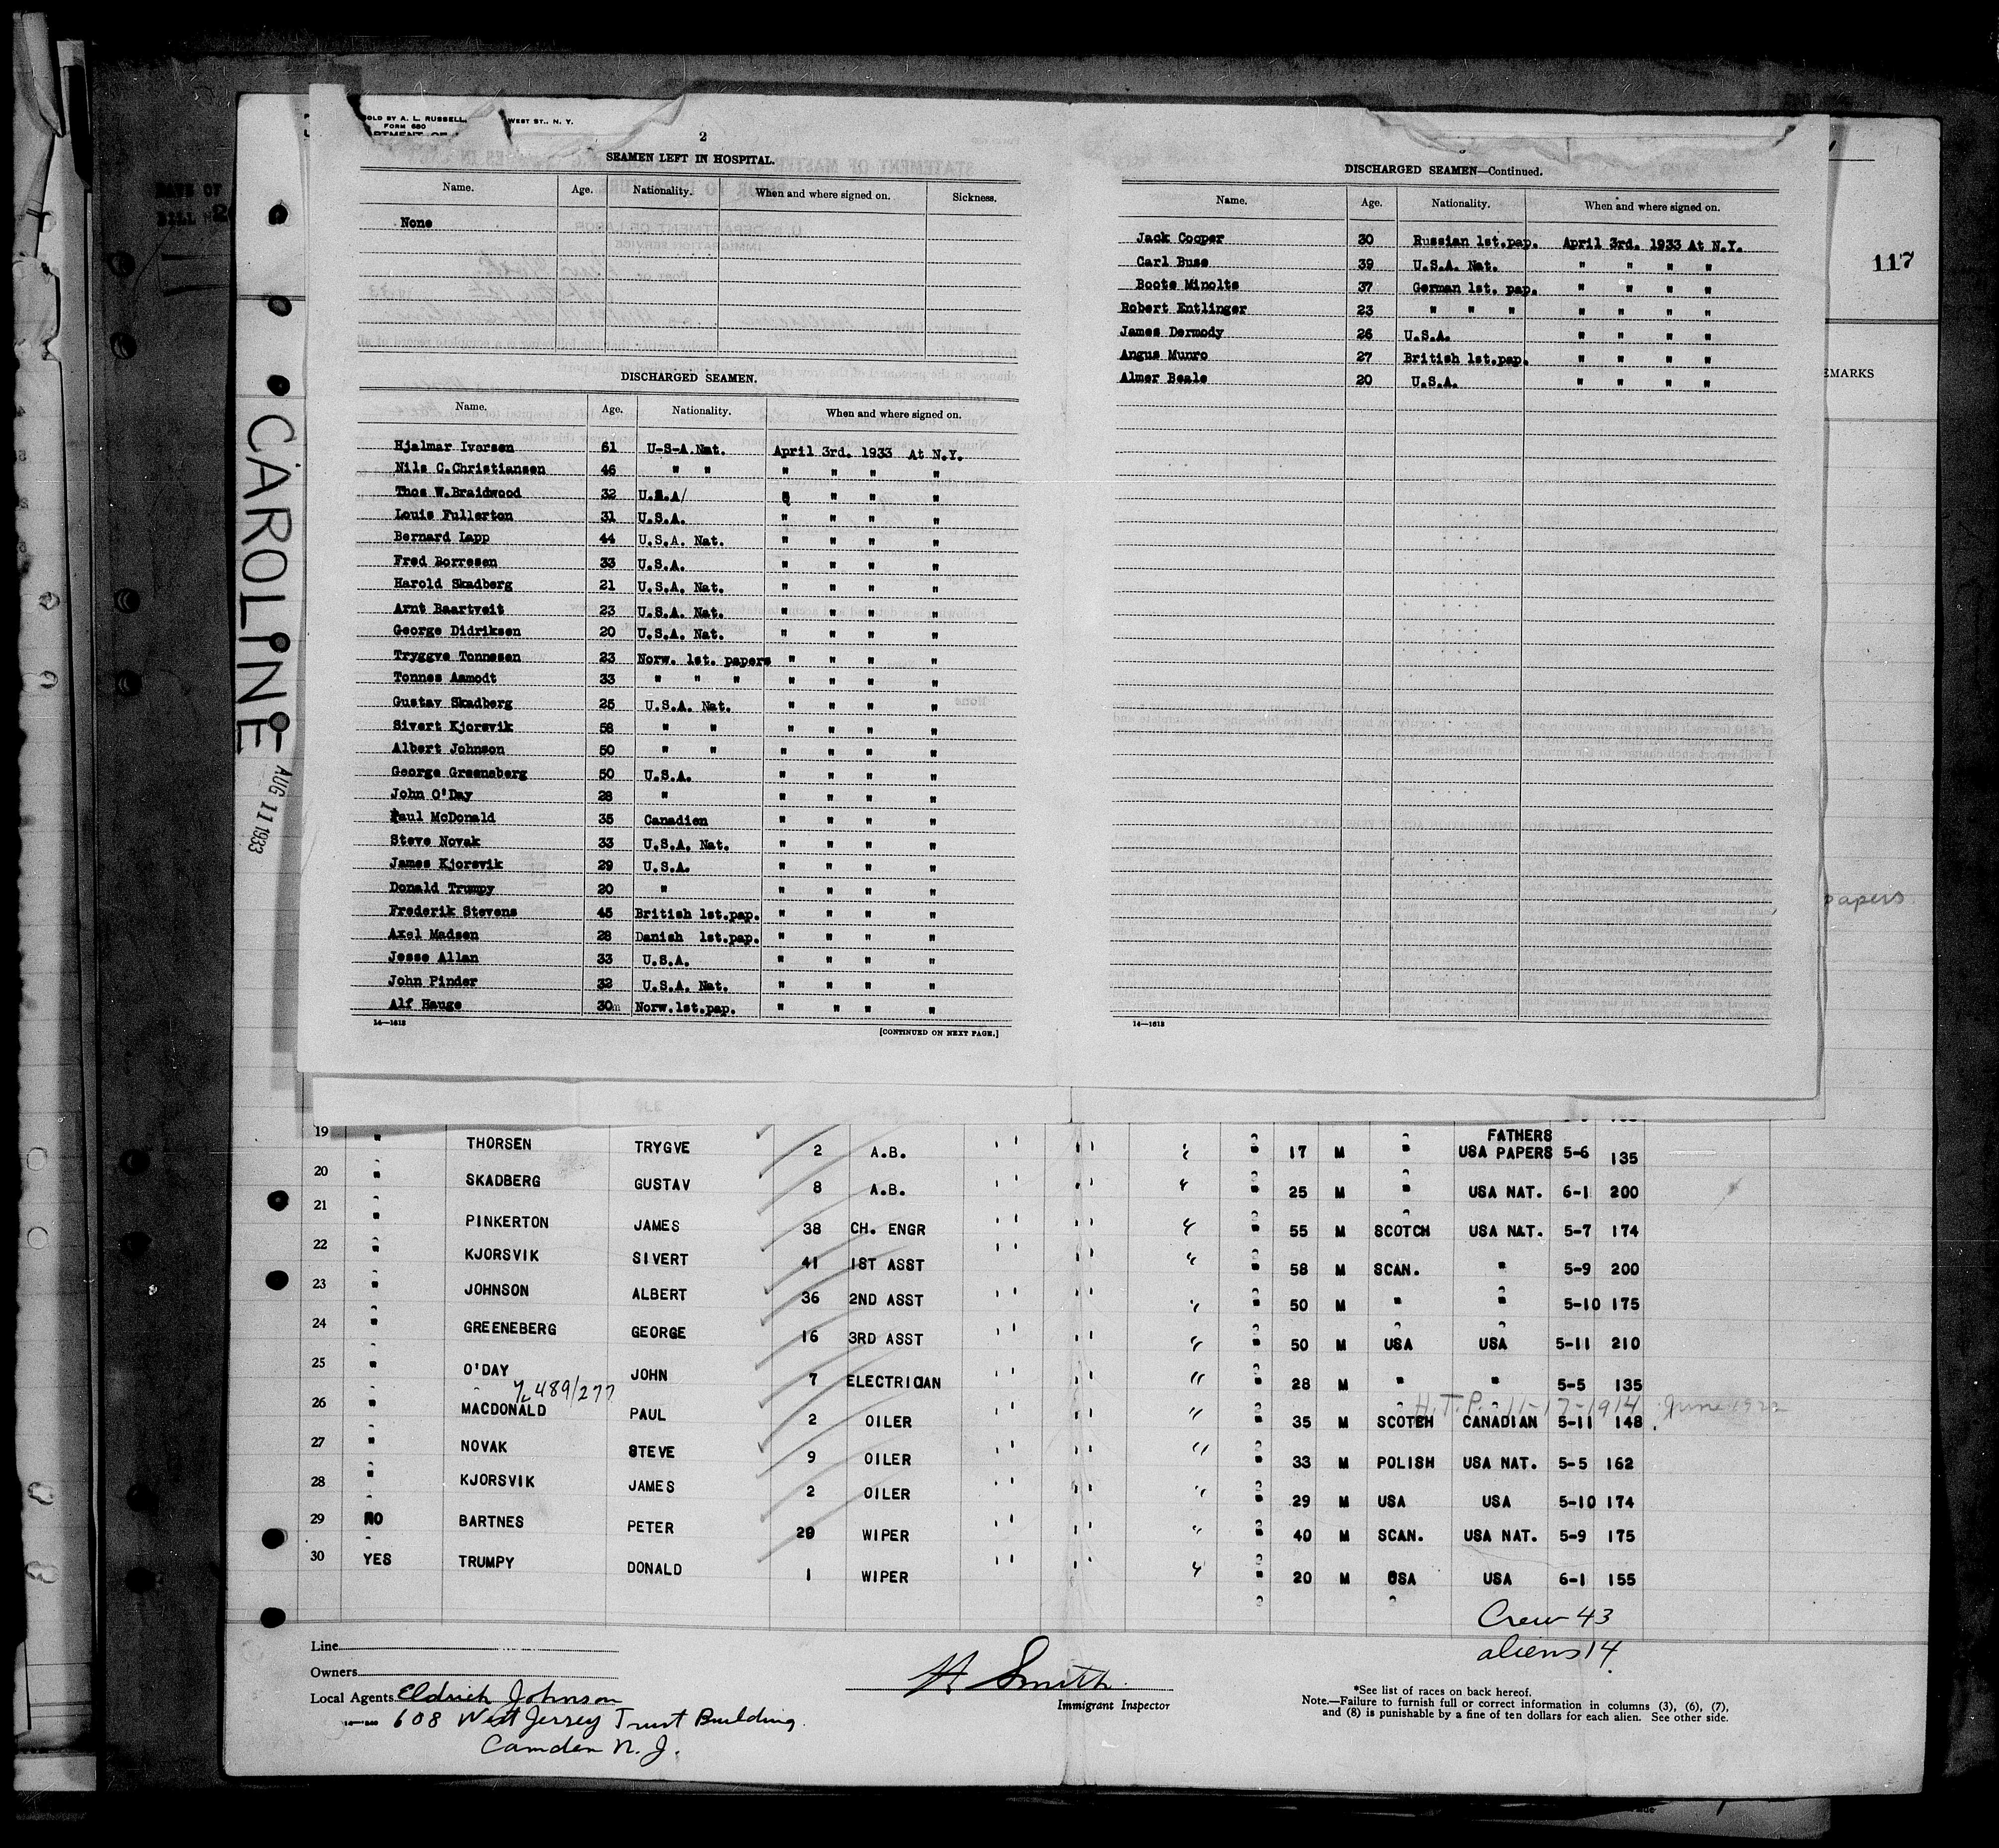 SOLD BY A. L. RUSSELL, WEST ST., N. Y.
FORM 680
2
SEAMEN LEFT IN HOSPITAL.
Name. Age. Nationality. When and where signed on. Sickness.
None
DISCHARGED SEAMEN.
Name. Age. Nationality. When and where signed on.
Hjalmar Iversen 61 U-S-A.Nat. April 3rd. 1933 At N.Y.
Nils C.Christiansen 46 " " " " " "
Thos W.Braidwood 32 U.S.A/ " " " "
Louis Fullerton 31 U.S.A. " " " "
Bernard Lapp 44 U.S.A. Nat. " " " "
Fred Borresen 33 U.S.A. " " " "
Harold Skadberg 21 U.S.A. Nat. " " " "
Arnt Baartveit 23 U.S.A. Nat. " " " "
George Didriksen 20 U.S.A. Nat. " " " "
Tryggve Tonnesen 23 Norw. 1st. papers " " " "
Tonnes Aamodt 33 " " " " " " "
Gustav Skadberg 25 U.S.A. Nat. " " " "
Sivert Kjorsvik 58 " " " " " "
Albert Johnson 50 " " " " " "
George Greeneberg 50 U.S.A. " " " "
John O'Day 28 " " " " "
Paul McDonald 35 Canadien " " " "
Steve Novak 33 U.S.A. Nat. " " " "
James Kjorsvik 29 U.S.A. " " " "
Donald Trumpy 20 " " " " "
Frederik Stevens 45 British 1st.pap. " " " "
Axel Madsen 28 Danish 1st.pap. " " " "
Jesse Allan 33 U.S.A. " " " "
John Pinder 32 U.S.A. Nat. " " " "
Alf Hauge 30 Norw.1st.pap. " " " "
14—1613 [CONTINUED ON NEXT PAGE.]
DISCHARGED SEAMEN—Continued.
Name. Age. Nationality. When and where signed on.
Jack Cooper 30 Russian 1st.pap. April 3rd. 1933 At N.Y.
Carl Buse 39 U.S.A. Nat. " " " "
Boote Minolts 37 German 1st. pap. " " " "
Robert Entlinger 23 " " " " " " "
James Dermody 26 U.S.A. " " " "
Angus Munro 27 British 1st.pap. " " " "
Almer Beale 20 U.S.A. " " " "
14—1613
117
EMARKS
papers
CAROLINE
AUG 11 1933
19 " THORSEN TRYGVE 2 A.B. " " " " 17 M " FATHERS USA PAPERS 5-6 135
20 " SKADBERG GUSTAV 8 A.B. " " " " 25 M " USA NAT. 6-1 200
21 " PINKERTON JAMES 38 CH. ENGR " " " " 55 M SCOTCH USA NAT. 5-7 174
22 " KJORSVIK SIVERT 41 1ST ASST " " " " 58 M SCAN. " 5-9 200
23 " JOHNSON ALBERT 36 2ND ASST " " " " 50 M " " 5-10 175
24 " GREENEBERG GEORGE 16 3RD ASST " " " " 50 M USA USA 5-11 210
25 " O'DAY JOHN 7 ELECTRICIAN " " " " 28 M " " 5-5 135
489/277 H.T.P. 11-17-1914 June 1922
26 " MACDONALD PAUL 2 OILER " " " " 35 M SCOTCH CANADIAN 5-11 148
27 " NOVAK STEVE 9 OILER " " " " 33 M POLISH USA NAT. 5-5 162
28 " KJORSVIK JAMES 2 OILER " " " " 29 M USA USA 5-10 174
29 NO BARTNES PETER 20 WIPER " " " " 40 M SCAN. USA NAT. 5-9 175
30 YES TRUMPY DONALD 1 WIPER " " " " 20 M USA USA 6-1 155
Crew 43
aliens 14
Line
Owners
Local Agents Eldrich Johnson
608 West Jersey Trust Building
Camden N. J.
H Smith
Immigrant Inspector
*See list of races on back hereof.
Note.—Failure to furnish full or correct information in columns (3), (6), (7),
and (8) is punishable by a fine of ten dollars for each alien. See other side.